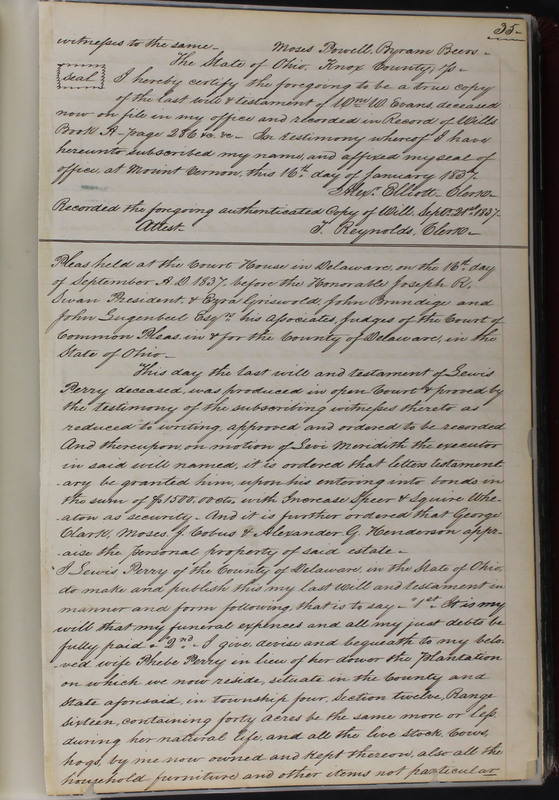 35-
witnesses to the same- Moses Powell, Byram Beers-
The State of Ohio, Knox County, ss-
seal I hereby certify the foregoing to be a true copy
of the last will & testament of Wm W. Evans, deceased
now on file in my office and recorded in Record of Wills
Book A- page 286 &c. &c- In testimony whereof I have
hereunto subscribed my name, and affixed my seal of
office, at Mount Vernon, this 16th day of January 1837-
Alexr Elliott- Clerk-
Recorded the foregoing authenticated Copy of Will, Septr 21st 1837-
Attest- T. Reynolds, Clerk-
Pleas held at the Court House in Delaware, on the 16th day
of September A.D. 1837, before the Honorable Joseph R.
Swan President, & Ezra Griswold, John Brundige and
John Lugenbeel Esqrs his Associates, Judges of the Court of
Common Pleas, in & for the County of Delaware, in the
State of Ohio-
This day the last will and testament of Lewis
Perry deceased, was produced in open Court & proved by
the testimony of the subscribing witnesses thereto as
reduced to writing, approved and ordered to be recorded
And thereupon, on motion of Levi Meridith the executor
in said will named, it is ordered that letters testament-
-ary be granted him, upon his entering into bonds in
the sum of $1500,00 cts, with Increase Speer & Squire Whe-
-aton as security- And it is further ordered that George
Clark, Moses J. Cobus & Alexander G. Henderson appr-
aise the personal property of said estate-
I Lewis Perry of the County of Delaware, in the State of Ohio,
do make and publish this my last Will and testament in
manner and form following, that is to say- "1st- It is my
will that my funeral expences and all my just debts be
fully paid- 2nd- I give, devise and bequeath to my belo-
-ved wife Phebe Perry in lieu of her dower the Plantation
on which we now reside, situate in the County and
State aforesaid, in township four, Section twelve, Range
Sixteen, containing forty acres be the same more or less,
during her natural life, and all the live stock, Cows,
hogs, by me now owned and kept thereon, also all the
household furniture and other items not particular